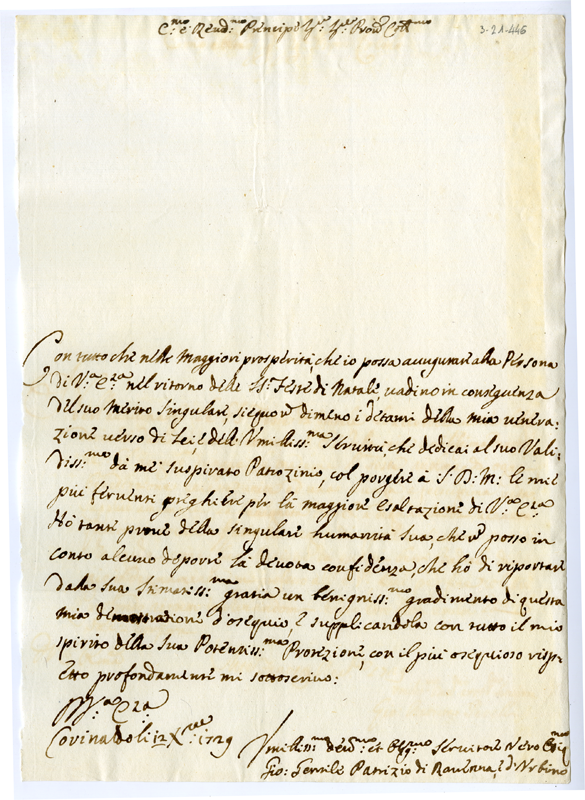 E.mo e Reud.mo Prencipe
3-21-446
Con tutto che nelle Maggiori prosperità, che io possa augurare alla Persona
di V.a E.za nel ritorno delle SS. Feste di Natale, uadino in conseguenza
del suo Merito Singulare, sieguo dimeno i dettami della mia venera-
zione uerso di Lei, e delle Vmiliss.ma seruitù che dedicai al suo Vali-
diss.mo da me suspirato Patrozinio, col porgere à S. D. M: le mie
più feruenti preghiere per la maggiore esaltazione di V.a E.za
Hò tante proue della singulare humanità sua, che posso in
conto alcuno deporre la deuota confidenza, che hò di riportare
dalla sua Stimatiss.ma gratia un benigniss.mo gradimento di questa
mia demostrazione d'osequio, e supplicandola con tutto il mio
spirito della sua Potentiss.ma Protezione, con il più osequioso risp-
etto profondamente mi sottoscriuo:
V.a E.za
Couinadoli 12 Xbre 1729
Vmiliss.mo et seruitore Vero
Gio: Gentile Patrizio di Rauenna, e d'Vrbino